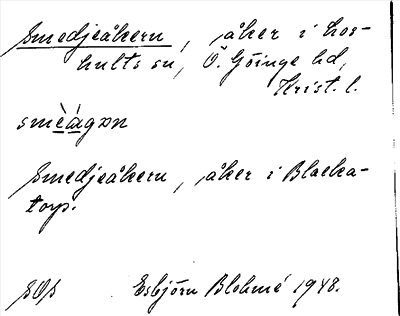 Smedjeåkern, åker i Hos-
hults sn, Ö. Göinge hd,
Krist. l.
smèágən
Smedjeåkern, åker i Blacka-
torp.
SOS Esbjörn Blohmé 1948.